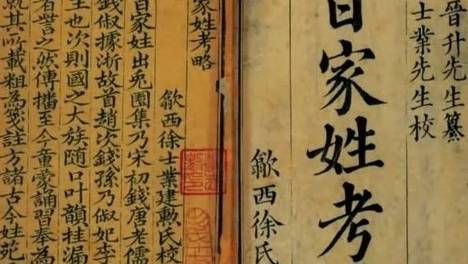 晉升先生纂
士業先生校
百家姓考
歙西徐氏
家姓考略
歙西徐士業建勳氏校
百家姓出兎園集乃宋初錢唐老儒
錢俶據浙故首趙次錢孫乃俶妃李
生也次則國之大族随口叶韻挂漏
者訾之然傳播至今童蒙誦習奉為
就其所載粗為箋註方諸古今姓苑